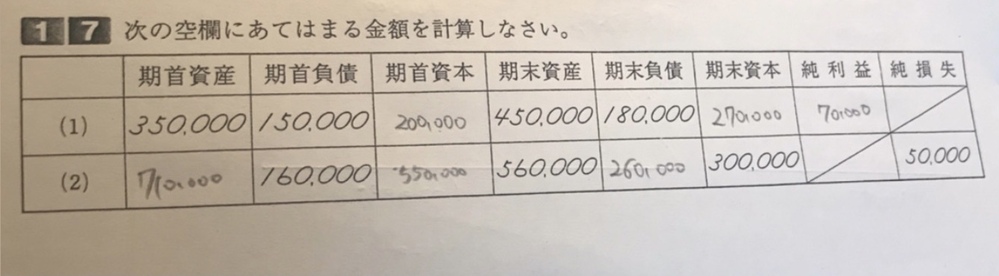 1 7 次の空欄にあてはまる金額を計算しなさい。
期首資産 期首負債 期首資本 期末資産 期末負債 期末資本 純利益 純損失
(1) 350,000 150,000 200,000 450,000 180,000 270,000 70,000
(2) 710,000 160,000 550,000 560,000 260,000 300,000 50,000